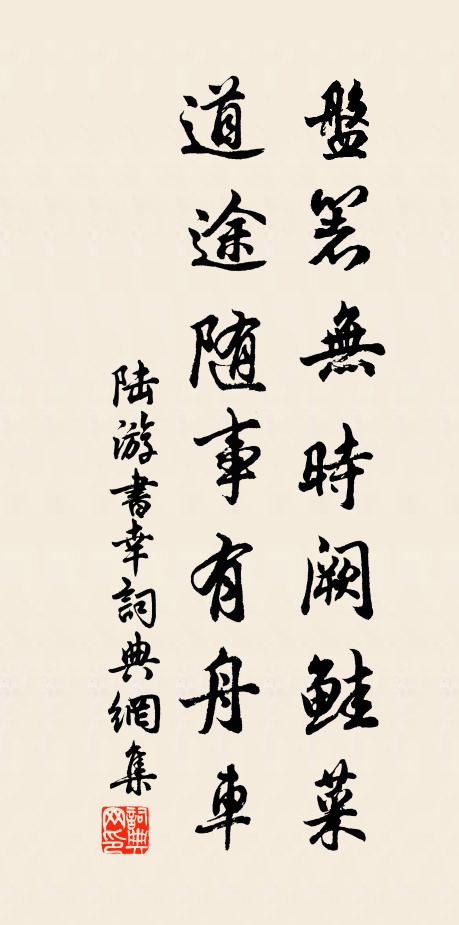 盤箸無時闕鮭菜
道途随事有舟車
陆游書幸詞典網集
詞典網印